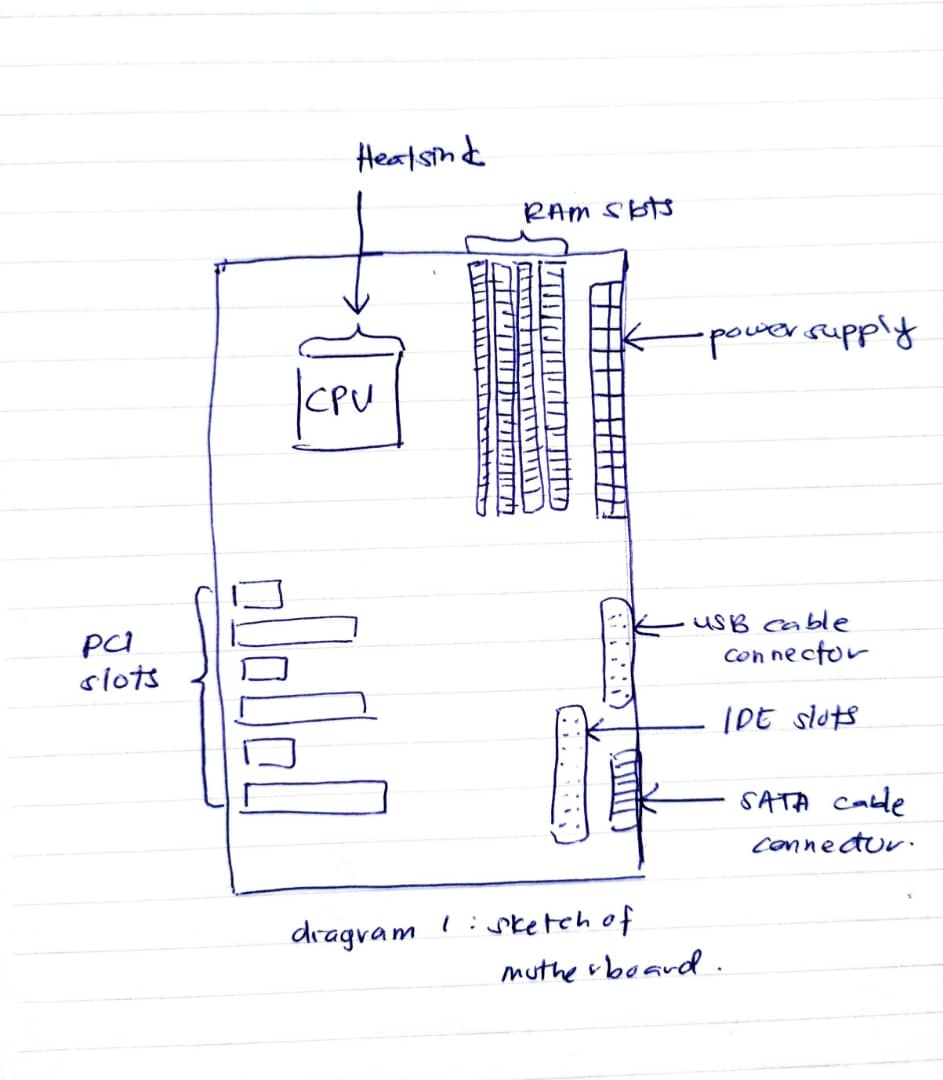 Heatsink
RAM slots
power supply
CPU
PCI
slots
USB cable
connector
IDE slots
SATA cable
connector.
diagram 1 : sketch of
motherboard.